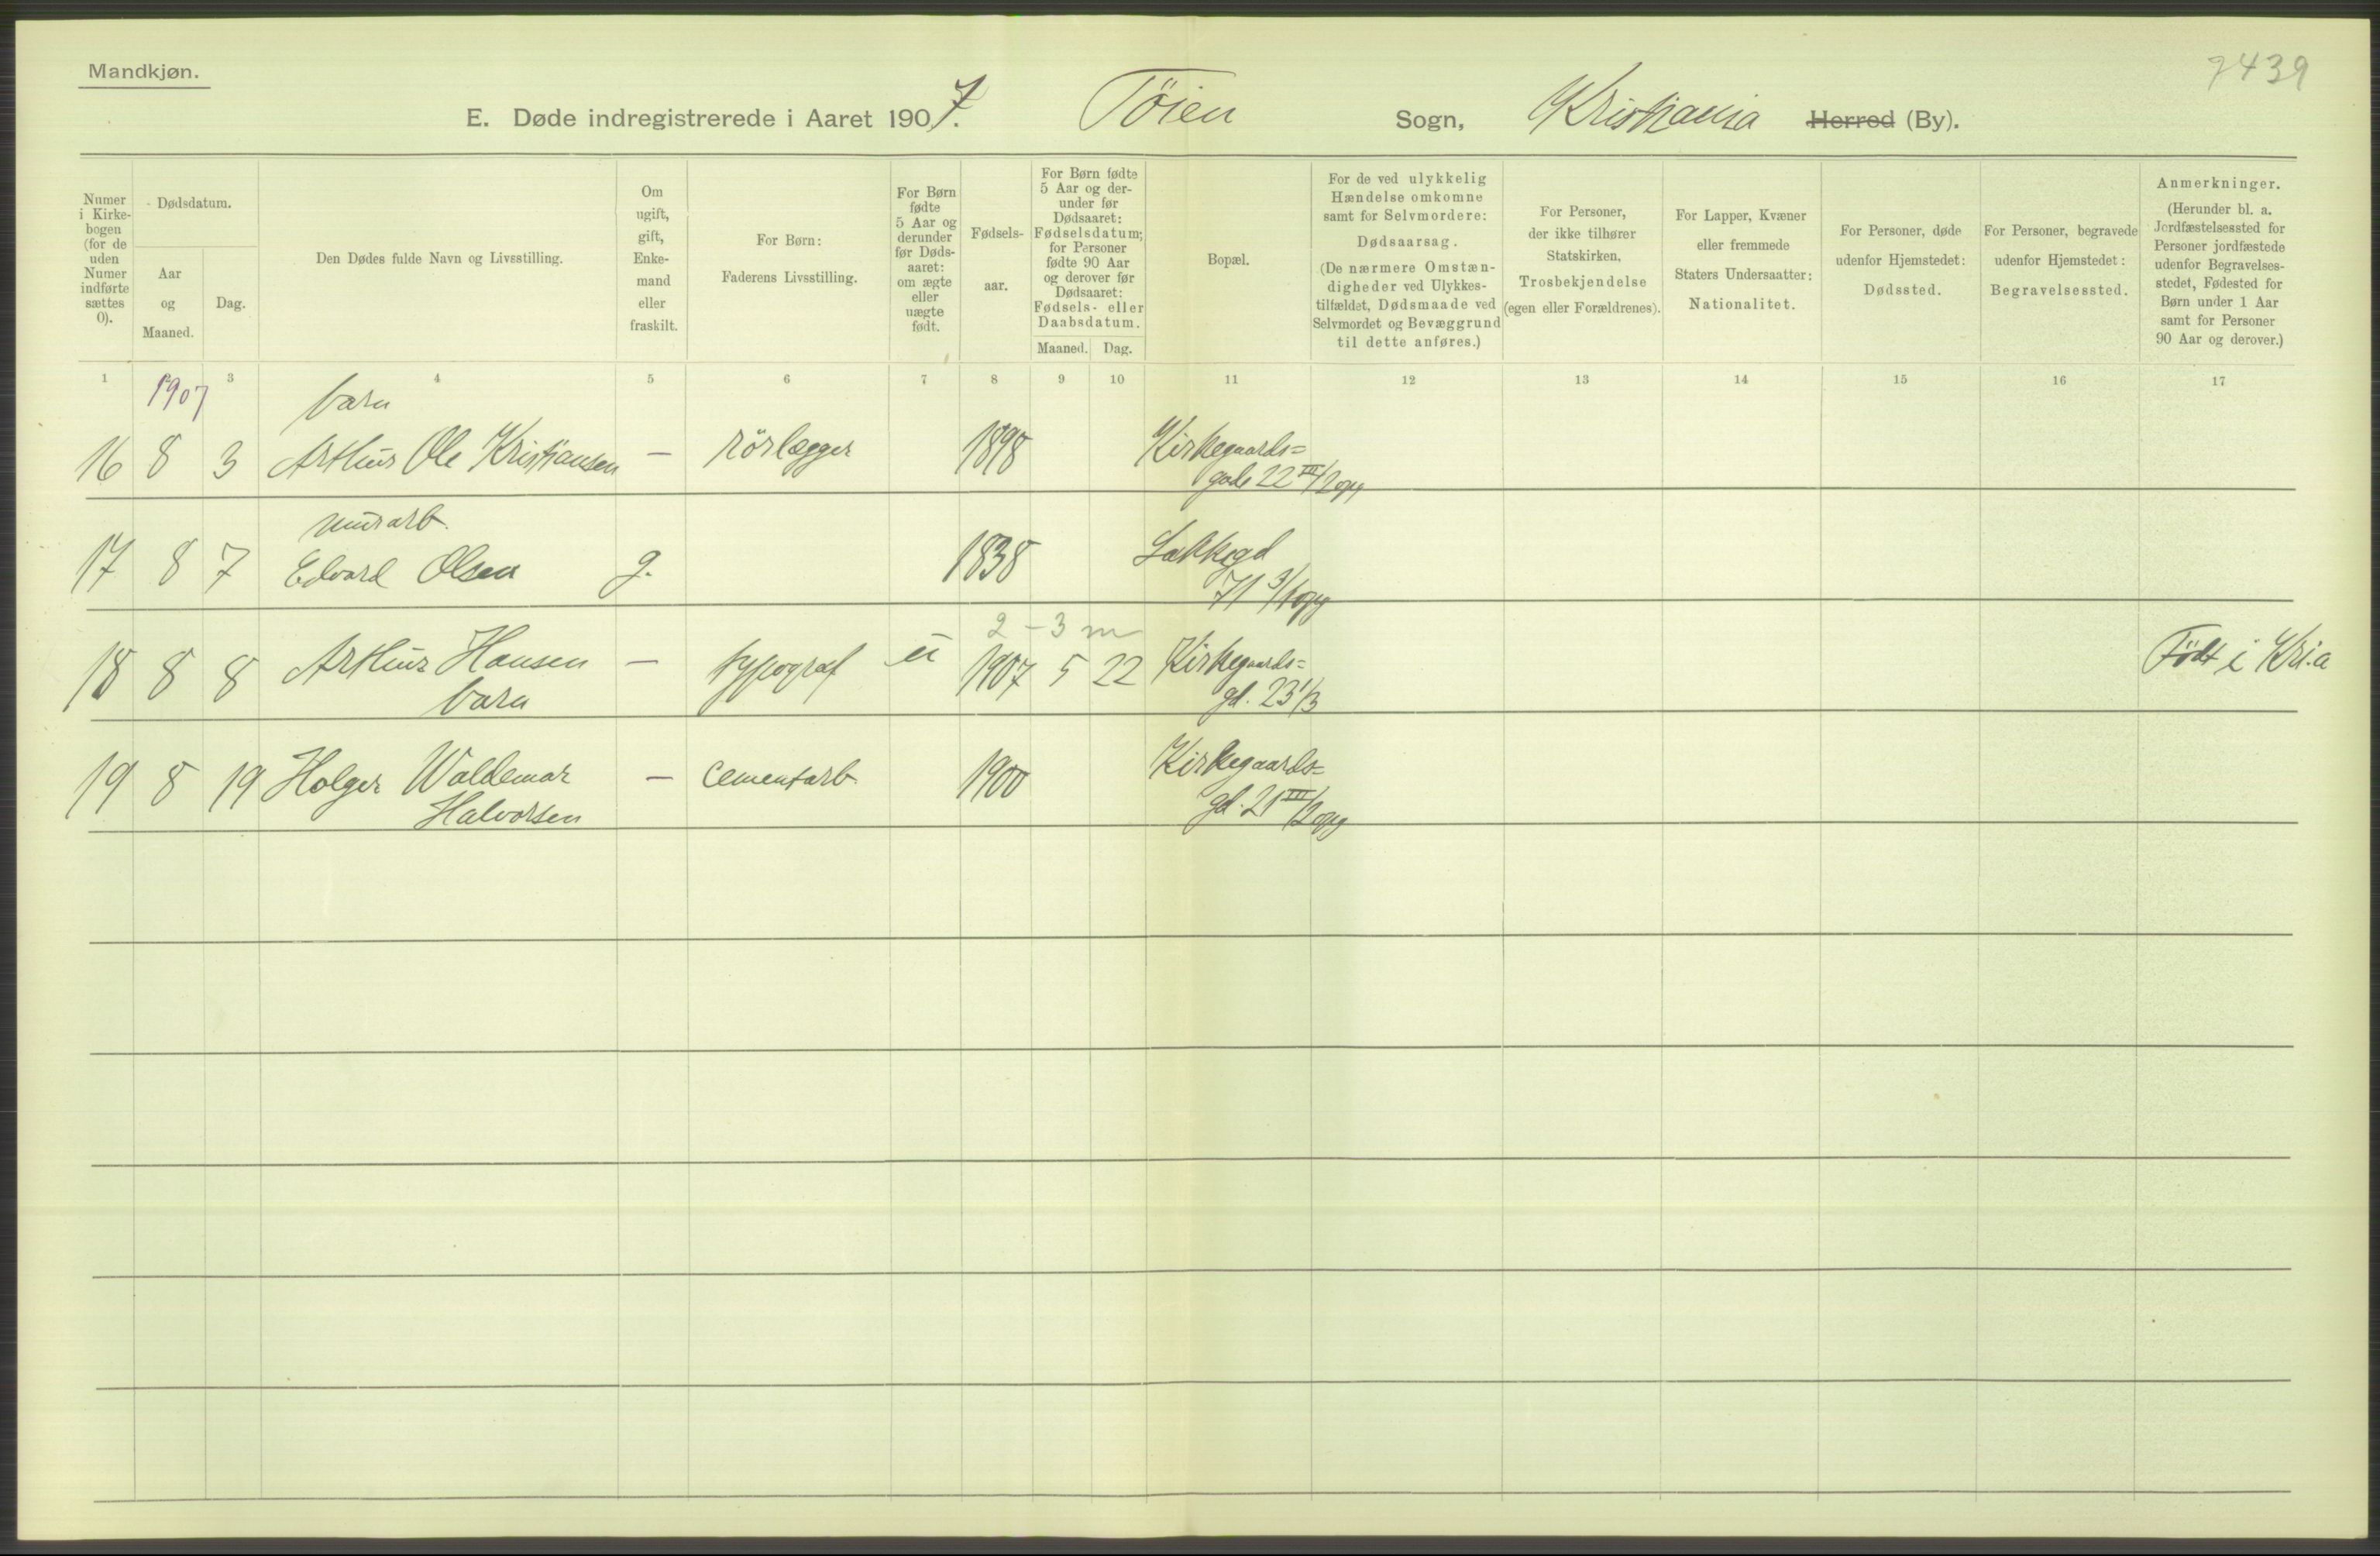 Mandkjøn.
7439
E. Døde indregistrerede i Aaret 1907. Töien Sogn, Kristiania Herred (By).
Numer i Kirkebogen (for de uden Numer indførte sættes 0).
Dødsdatum.
Aar og Maaned.
Dag.
Den Dødes fulde Navn og Livsstilling.
Om ugift, gift, Enkemand eller fraskilt.
For Børn:
Faderens Livsstilling.
For Børn fødte 5 Aar og derunder før Dødsaaret: om ægte eller uægte født.
Fødselsaar.
For Børn fødte 5 Aar og derunder før Dødsaaret: Fødselsdatum; for Personer fødte 90 Aar og derover før Dødsaaret: Fødsels- eller Daabsdatum.
Maaned. Dag.
Bopæl.
For de ved ulykkelig Hændelse omkomne samt for Selvmordere:
Dødsaarsag.
(De nærmere Omstændigheder ved Ulykkestilfældet, Dødsmaade ved Selvmordet og Bevæggrund til dette anføres.)
For Personer, der ikke tilhører Statskirken, Trosbekjendelse (egen eller Forældrenes).
For Lapper, Kvæner eller fremmede Staters Undersaatter: Nationalitet.
For Personer, døde udenfor Hjemstedet: Dødssted.
For Personer, begravede udenfor Hjemstedet: Begravelsessted.
Anmerkninger.
(Herunder bl. a. Jordfæstelsessted for Personer jordfæstede udenfor Begravelsesstedet, Fødested for Børn under 1 Aar samt for Personer 90 Aar og derover.)
1 3 4 5 6 7 8 9 10 11 12 13 14 15 16 17
1907
barn
16 8 3 Arthur Ole Kristiansen — rörlægger 1898 Kirkegaards=
gade 22 III/2opg
murarb.
17 8 7 Edvard Olsen g. 1838 Lakkegd
71 3/1opg
2 - 3 m
18 8 8 Arthur Hansen — typograf u 1907 5 22 Kirkegaards= Födt i Kri.a
barn gd. 23 1/3
19 8 19 Holger Waldemar — cementarb. 1900 Kirkegaards=
Halvorsen gd. 21 III/2opg